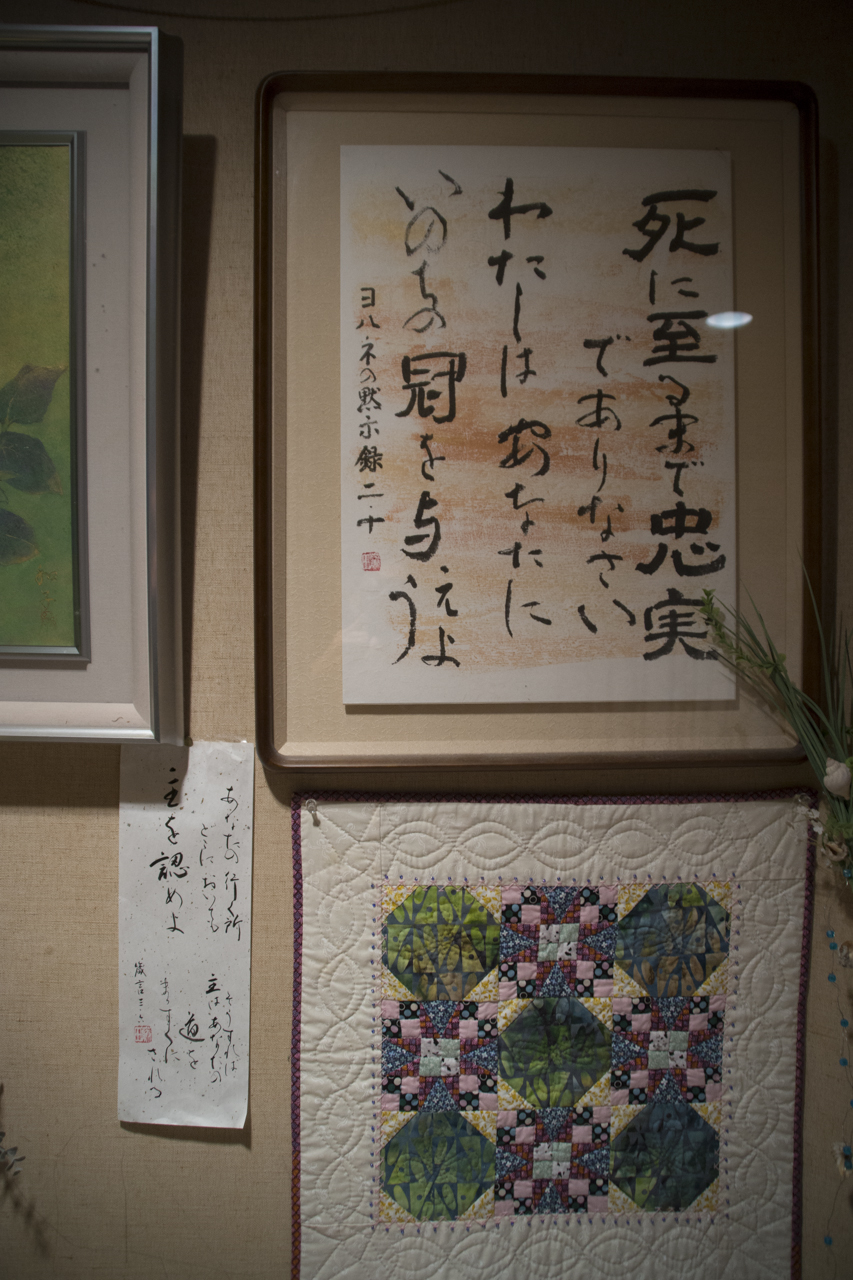 死に至るまで忠実
でありなさい
わたしはあなたに
いのちの冠を与えよ
う
ヨハネの黙示録二・十
あなたの行く所
どこにおいても
主を認めよ
そうすれば
主はあなたの
道を
まっすぐに
される
箴言三・六